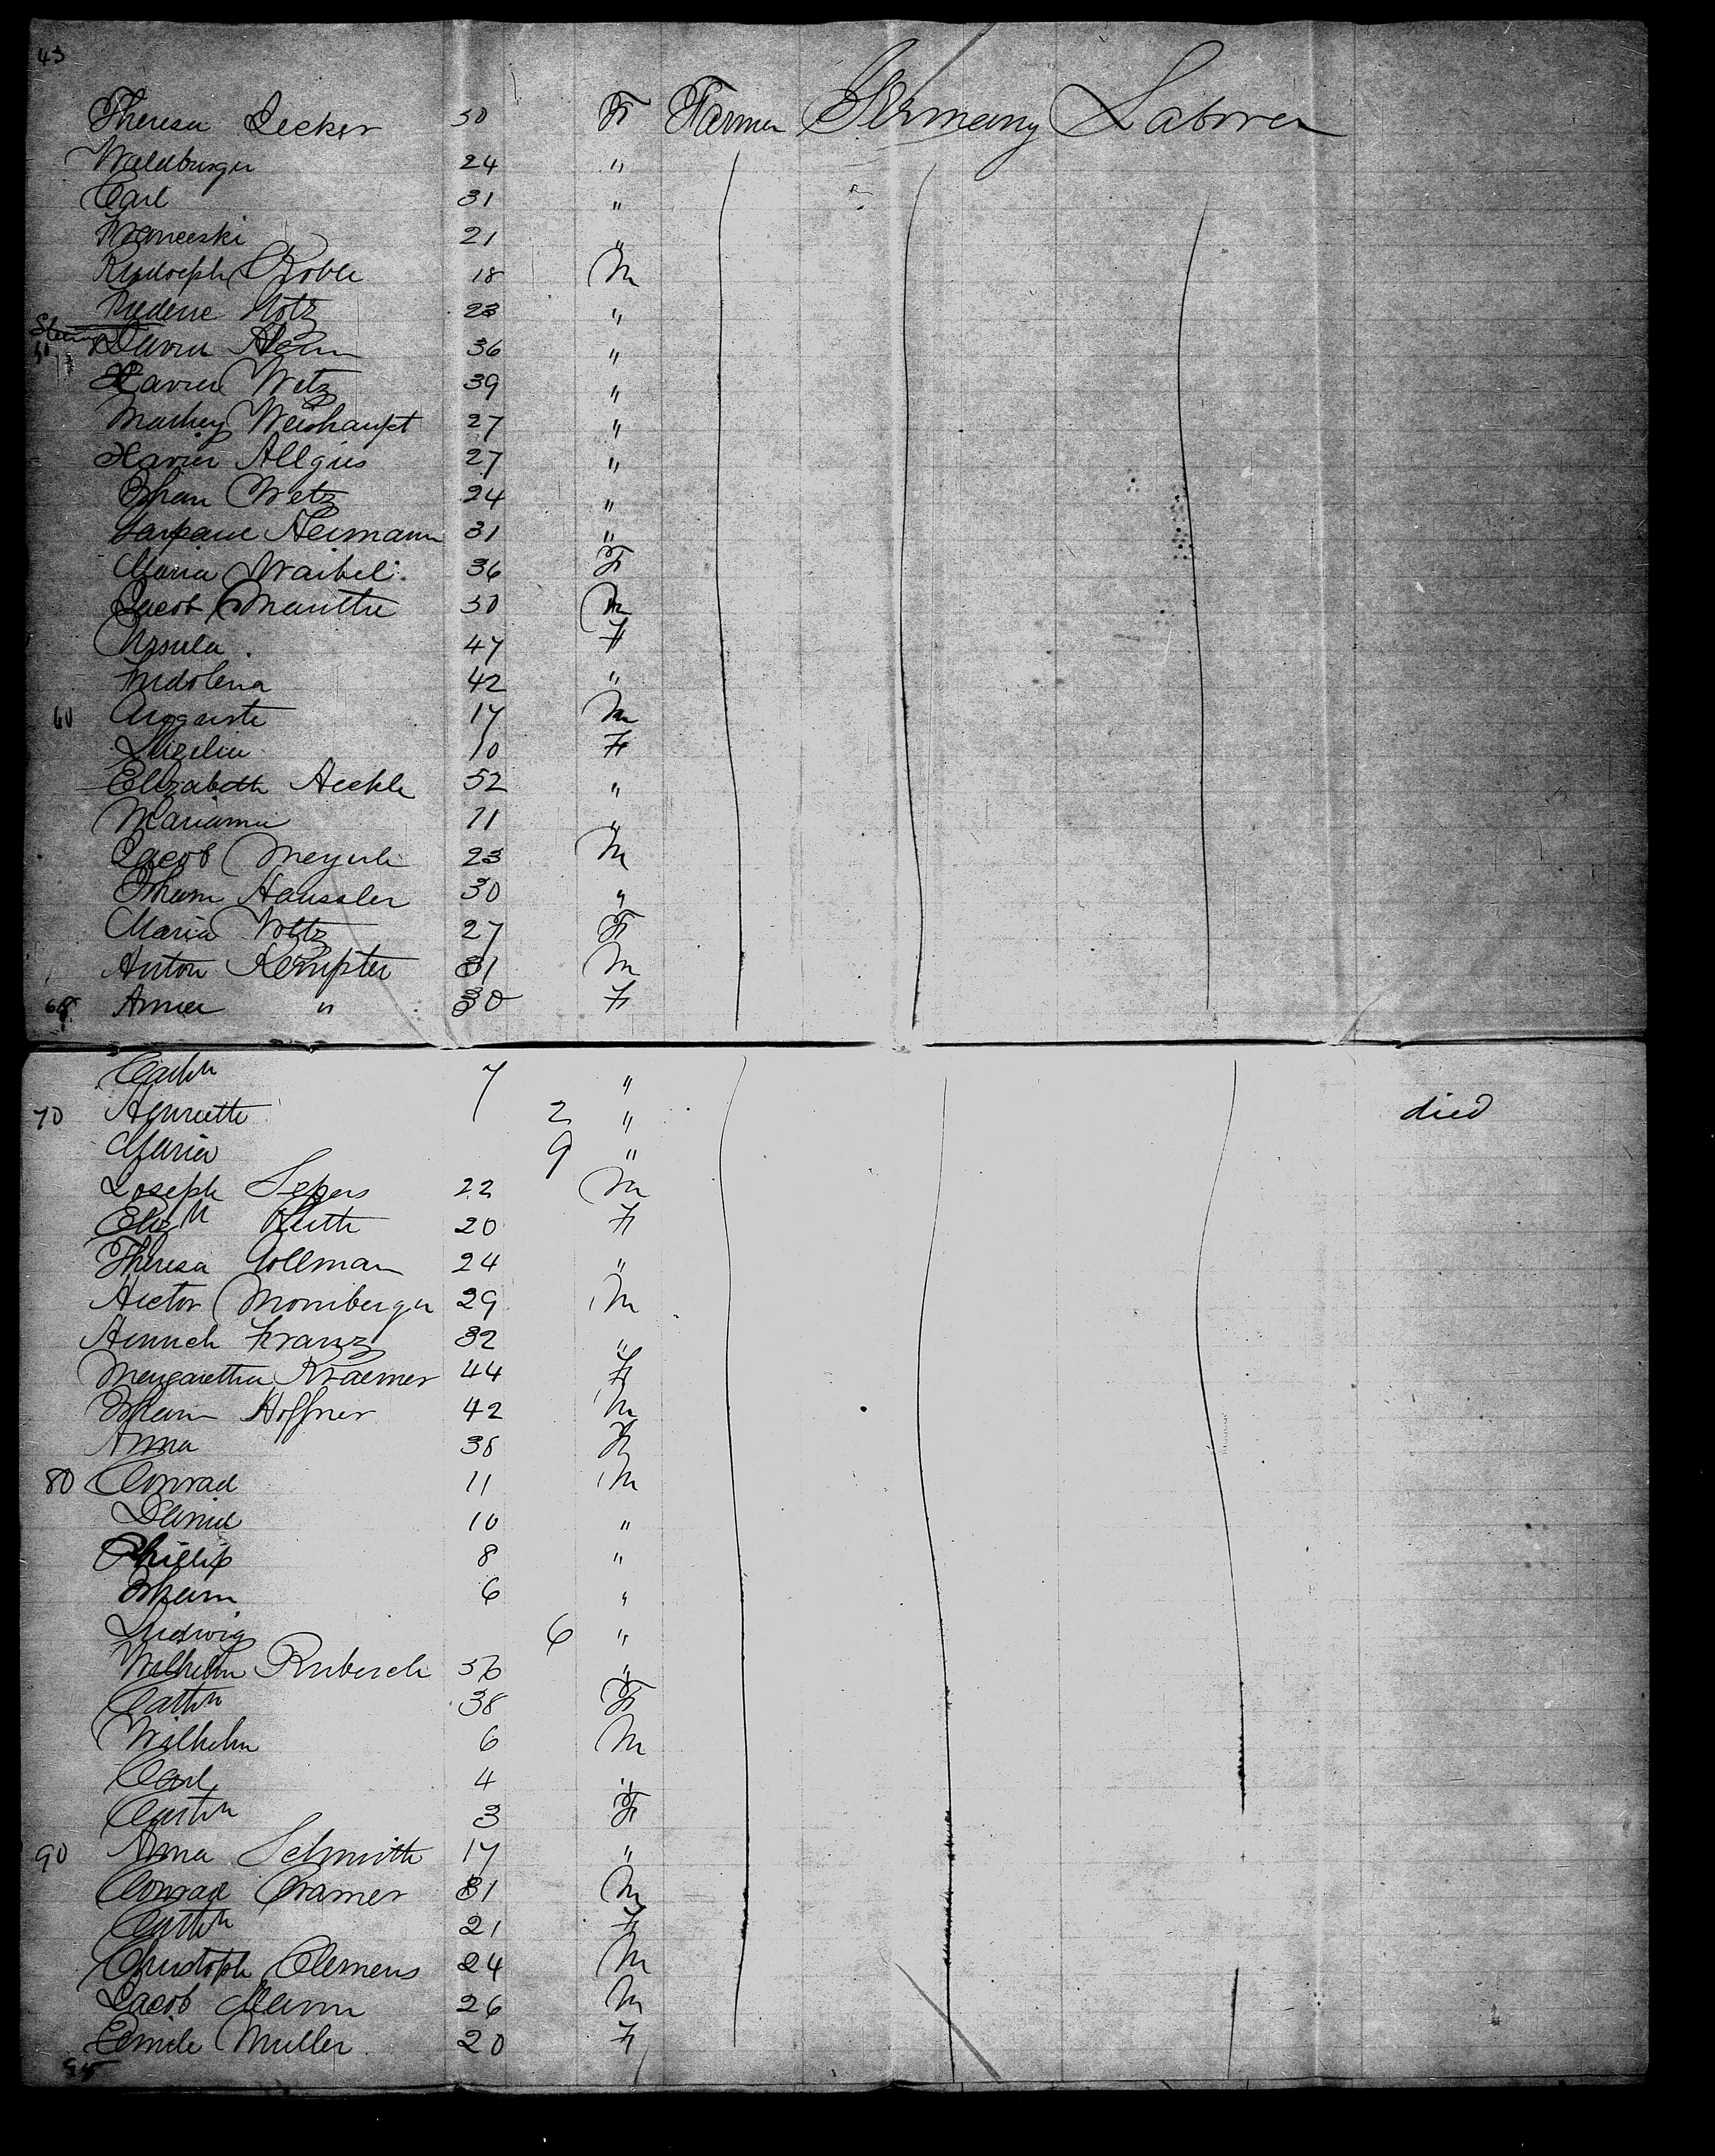 43
Theresa Decker 50 F Farmer Germany Laborer
Waldburga 24 "
Carl 31 "
21 "
Rudolph 18 M
Frederic Hotz 23 "
50 36 "
Xavier Wetz 39 "
Weishaupt 27 "
Xavier Allgies 27 "
Johan Wetz 24 "
Heimann 31 "
Maria Waibel 36 F
Jacob 50 M
Ursula 47 F
Fridolena 42 "
60 Auguste 17 M
10 F
Elizabeth Aeckle 52 "
Marianna 11 "
Jacob Meyerle 23 M
Johann Haussler 30 "
Maria Voltz 27 F
Anton Kempter 31 M
68 Anna " 30 F
Cathn 7 "
70 Henriette 2 " died
Maria 9 "
Joseph 22 M
Elizth 20 F
Theresa Collman 24 "
Hector Momberger 29 M
Heinrich Franz 32 "
Margaretha Kraemer 44 F
Johann Hoffner 42 M
Anna 38 F
80 Conrad 11 M
Daniel 10 "
Phillip 8 "
Johann 6 "
Ludwig 6 "
Wilhelm 36 "
Cathn 38 F
Wilhelm 6 M
Carl 4 "
Cathn 3 F
90 Anna Schmith 17 "
Conrad Cramer 31 M
Cathn 21 F
Christoph Clemens 24 M
Jacob Mann 26 M
Emile Muller 20 F
95